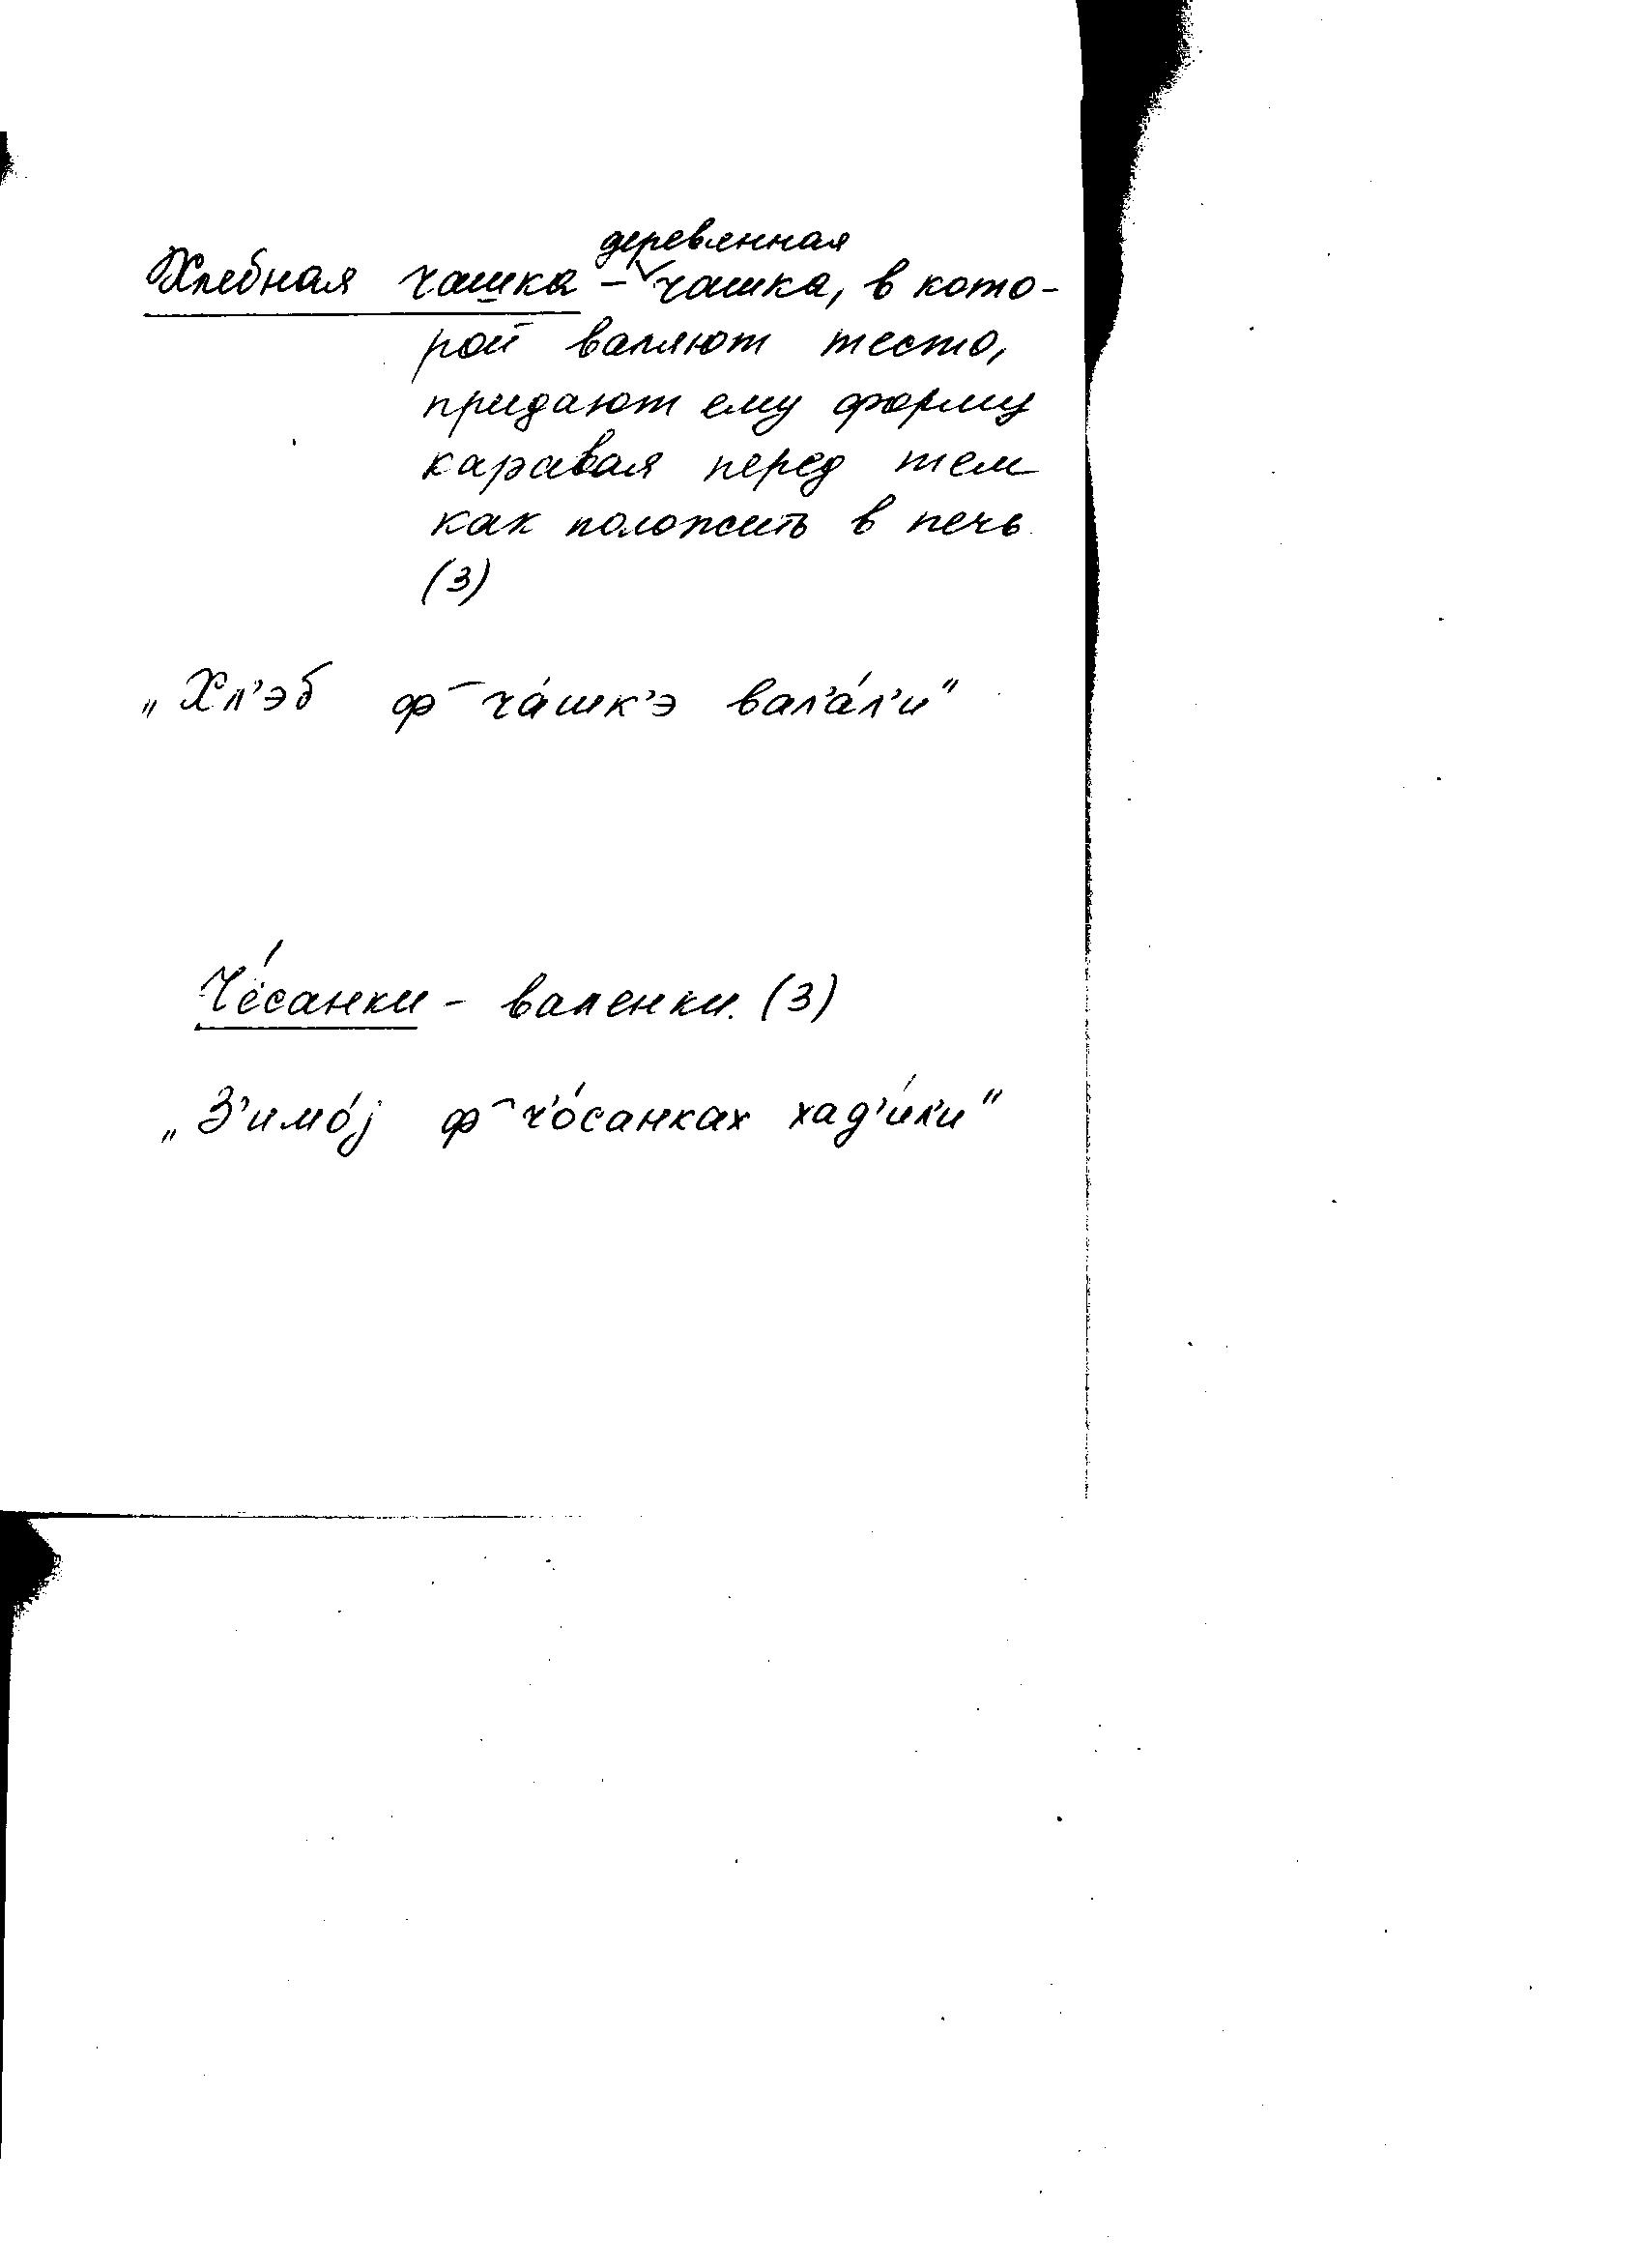 Хлебная чашка – деревянная чашка, в кото-
рой валяют тесто,
придают ему форму
каравая перед тем
как положить в печь.
(3)
„Хл'эб ф‾ча́шк'э вал'а́л'и"
Чёсанки – валенки. (3)
„З'имо́j ф‾ч'о́санках хад'и́л'и"